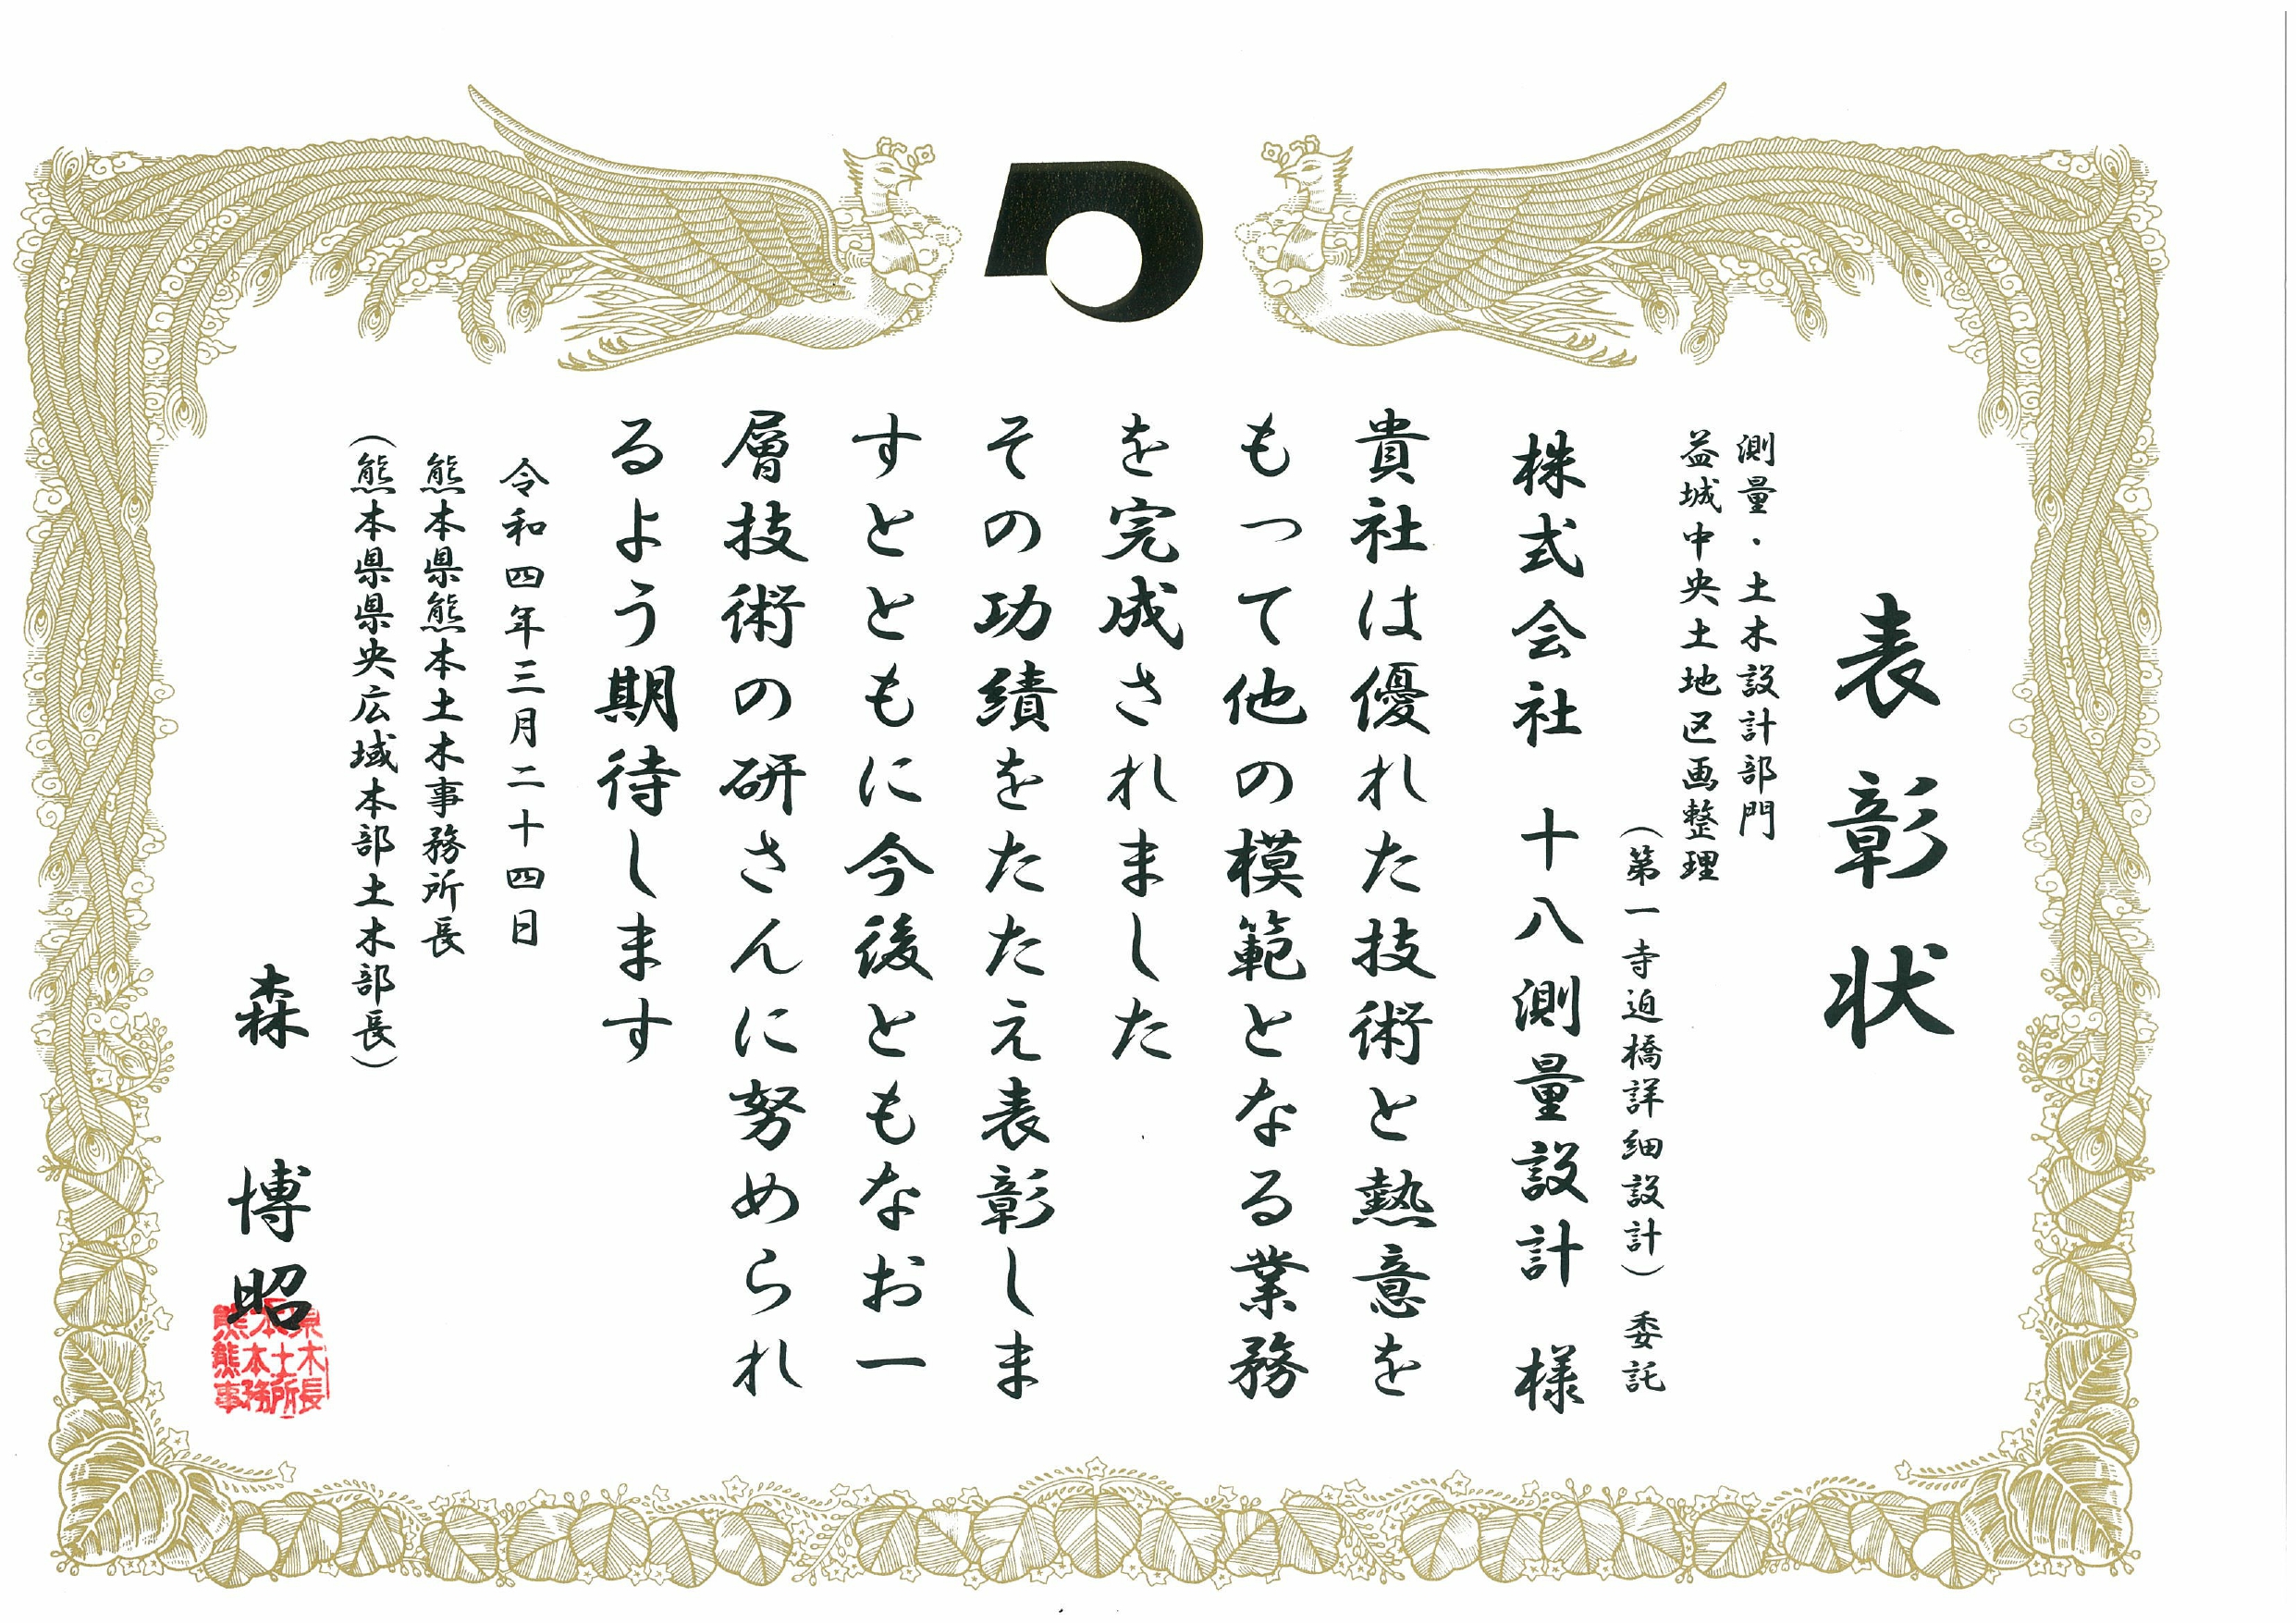 表彰状
測量・土木設計部門
益城中央土地区画整理
（第一寺迫橋詳細設計）委託
株式会社 十八測量設計 様
貴社は優れた技術と熱意を
もって他の模範となる業務
を完成されました
その功績をたたえ表彰しま
すとともに今後ともなお一
層技術の研さんに努められ
るよう期待します
令和四年三月二十四日
熊本県熊本土木事務所長
（熊本県県央広域本部土木部長）
森 博昭
熊本県
熊本土木
事務所長